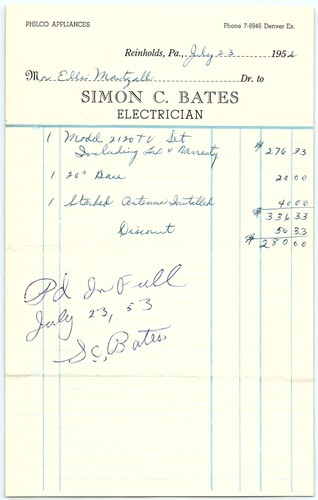 PHILCO APPLIANCES Phone 7-8946 Denver Ex.
Reinholds, Pa., July 23 1952
Mr. Ellis Dr. to
SIMON C. BATES
ELECTRICIAN
1 Model 2120 TV Set
Including Tax & Warranty $ 276 33
1 20" Base 20 00
1 Stacked Antenna Installed 40 00
$ 336 33
Discount 50 33
$ 280 00
P'd In Full
July 23, 53
S.C. Bates